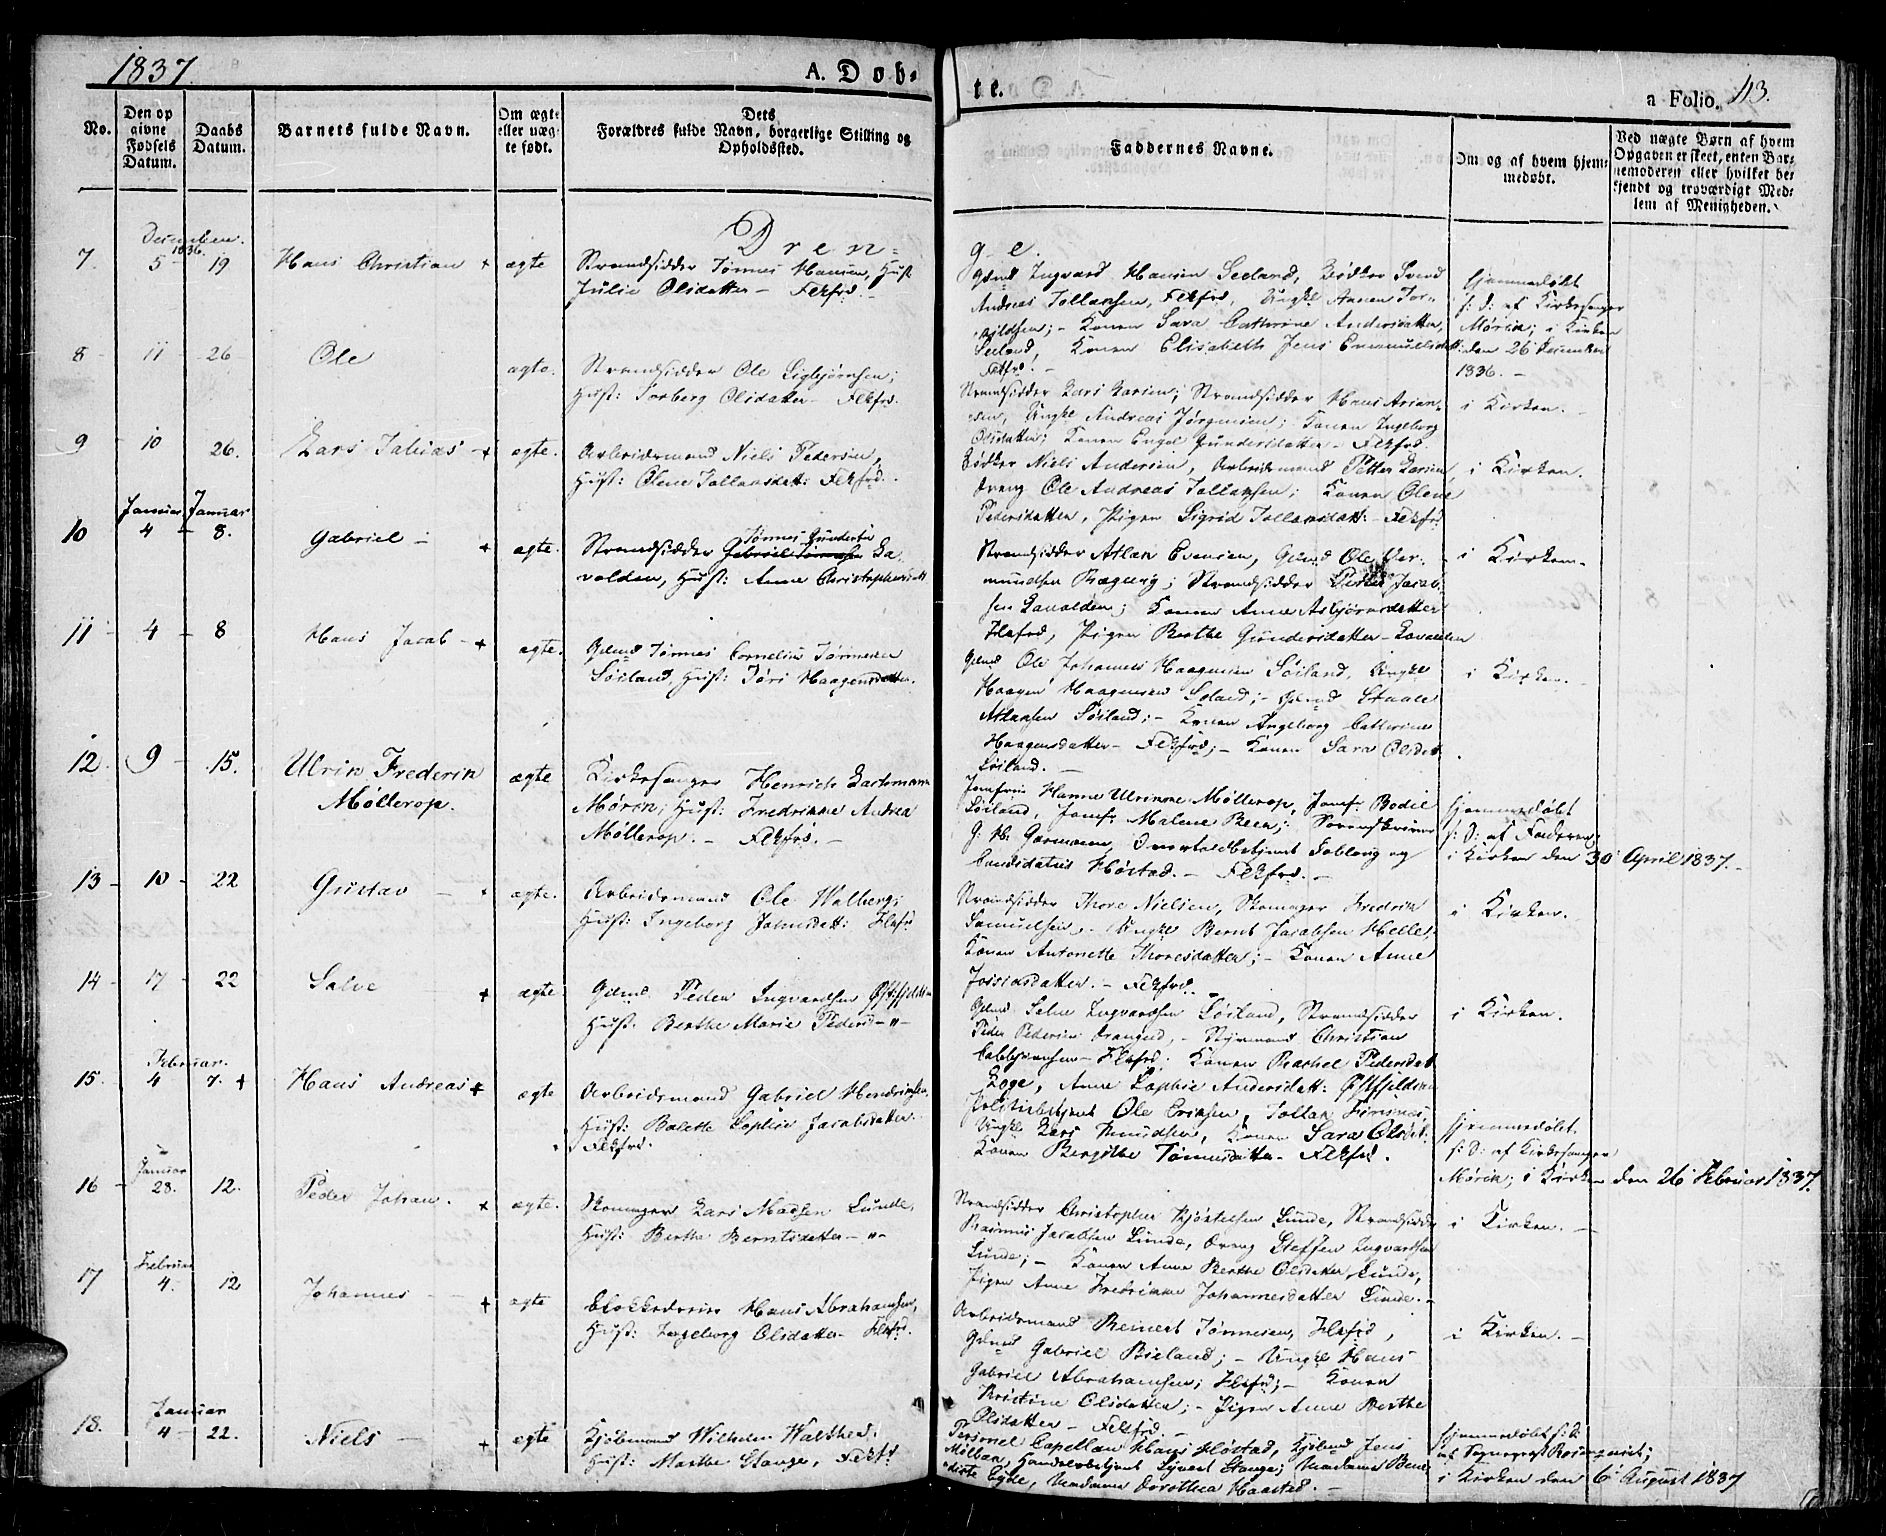 1837.
A. Døb-
te.
a Folio. 113.
No.
Den op
givne
Fødsels
Datum.
Daabs
Datum.
Barnets fulde Navn.
Om ægte
eller uæg-
te født.
Dets
Forældres fulde Navn, borgerlige Stilling og
Opholdssted.
Faddernes Navne.
Om og af hvem hjem-
medøbt.
Ved uægte Børn af hvem
Opgaven er skeet, enten Bar-
nemoderen eller hvilket be-
kjendt og troværdigt Med-
lem af Menigheden.
Dren-
ge.
December
1836.
7. 5 - 19 Hans Christian + ægte
Strandsidder Tønnes Hansen, Hust
Julie Olsdatter - Flkfrd.
Gdmd Ingvard Hansen Seeland, Bødker Svend
Andreas Tollaksen, Flkfrd,
Konen Sara Cathrine Andersdatter,
Seeland, Konen Elisabeth Jens
Flkfrd. -
hjemmedøbt
f: D: af Kirkesanger
Mørch; i Kirken
den 26 December
1836. -
8 - 11 - 26 Ole ægte.
Strandsidder Ole Sigbjørnsen;
Hust: Torberg Olsdatter - Flkfrd.
Strandsidder Lars Larsen; Strandsidder Hans Arian-
sen, Ungkl Andreas Jørgensen; Konen Ingeborg
Olsdatter; Konen Engel Gundersdatter - Flkfrd.
i Kirken. -
9 - 10 26. Lars Tobias + ægte.
Arbeidsmand Niels Pedersen,
Hust: Olene Tollaksdatt: Flkfrd.
Bødker Niels Andersen, Arbeidsmand Petter Larsen
Dreng Ole Andreas Tollaksen; Konen Olene
Pedersdatter, Pigen Sigrid Tollaksdatt: - Flkfrd
i Kirken.
Januar Januar
10 4 - 8. Gabriel - + ægte.
Tønnes Gundersen
Strandsidder Gabriel Tønnesen La-
volden, Hust: Anne Christophersdatt
Strandsidder Atlak Evensen, Gdmd Ole Ver-
mundsen Bægevig; Strandsidder Peder Jacob-
sen Lavolden; Konen Anne Asbjørnsdatter
Flkfrd, Pigen Berthe Gundersdatter - Lavolden
i Kirken.
11 - 4 - 8 Hans Jacob - + ægte.
Gdmd Tønnes Cornelius Tønnesen
Søiland, Hust: Tøri Haagensdatter.
Gdmd Ole Johannes Haagensen Søiland, Ungkl
Haagen Haagensen Søland; - Gdmd Staale
Atlaksen Søiland; - Konen Ingeborg Cathrine
Haagensdatter - Flkfrd; - Konen Sara Olsdat
Søiland. -
i Kirken. -
12. 9 - 15. Ulrik Frederik
Møllerop.
ægte
Kirkesanger Henrich Bachmann
Mørch; Hust: Fredrikke Andrea
Møllerop. - Flkfrd. -
Jomfru Hanne Ulrikke Møllerop, Jomfr: Bodil
Søiland, Jomfr: Malene Beer; Sorenskriver
G. H. Garmann, og
Candidatus Høstad. - Flkfrd. -
hjemmedøbt
f: D: af Faderen;
i Kirken den 30 April 1837. -
13 - 10 - 22 Gustav - + ægte.
Arbeidsmand Ole Walberg;
Hust: Ingeborg Johnsdatt: Flkfrd
Strandsidder Thore Nielsen, Skomager Fredrik
Samuelsen, Ungkl Bernt Jacobsen Helle;
Konen Antonette Thoresdatter; - Konen Anne
Jossiasdatter. - Flkfrd.
i Kirken. -
14 - 17 - 22 Salve + ægte
Gdmd Peder Ingvardsen Østfjeldet
Hust: Berthe Marie Peders - " -
Gdmd Salve Ingvardsen Søiland, Strandsidder
Peder Pedersen Drangeid, - Styrmand Christian
- Flkfrd; Konen Rachel Pedersdat
Loge, Anne Sophie Andersdatt:
i Kirken.
Februar.
15. 4 7. + Hans Andreas + ægte
Arbeidsmand Gabriel Hendriksen,
Hust: Bolette Sophie Jacobsdatter
Flkfrd.
Politiebetjent Ole Eriksen, Tollak
Ungkl Lars Knudsen, Konen Sara Olsdat:
Konen Bergithe Tønnesdatter - Flkfrd.
hjemmedøbt
f: D: af Kirkesanger
Mørch; i Kirken den 26 Februar 1837.
Januar
16 - 28. 12. Peder Johan. + ægte.
Skomager Lars Madsen Lunde,
Hust: Berthe Berntsdatter - " -
Strandsidder Christopher Kjøstelsen Lunde, Strandsidder
Rasmus Jacobsen Lunde, Dreng Steffen Ingvardsen
Lunde; - Konen Anne Berthe Olsdatter Lunde,
Pigen Anne Fredrikke Johannesdatter Lunde. -
i Kirken. -
Februar
17 4. 12 Johannes - + ægte
Blokkedreier Hans Abrahamsen,
Hust: Ingeborg Olsdatter - Flkfrd.
Arbeidsmand Reinert Tønnesen, Flkfrd,
Gdmd Gabriel Bieland; - Ungkl Hans
Gabriel Abrahamsen; Flkfrd; - Konen
Kristine Olsdatter; - Pigen Anne Berthe
Olsdatter - Flkfrd. -
i Kirken. -
Januar
18. 4 - 22. Niels - + ægte
Kjøbmand Wilhelm Walther
Hust: Marthe Stange, Flkfrd
Personel Capellan Hans Høstad, Kjøbmd Jens
Handelsbetjent Syvert Stange; Madame Bene-
dicte Eyde, Madame Dorothea Haasted. -
hjemmedøbt f: D:
af Sogneprest
i Kirken den 6 August 1837